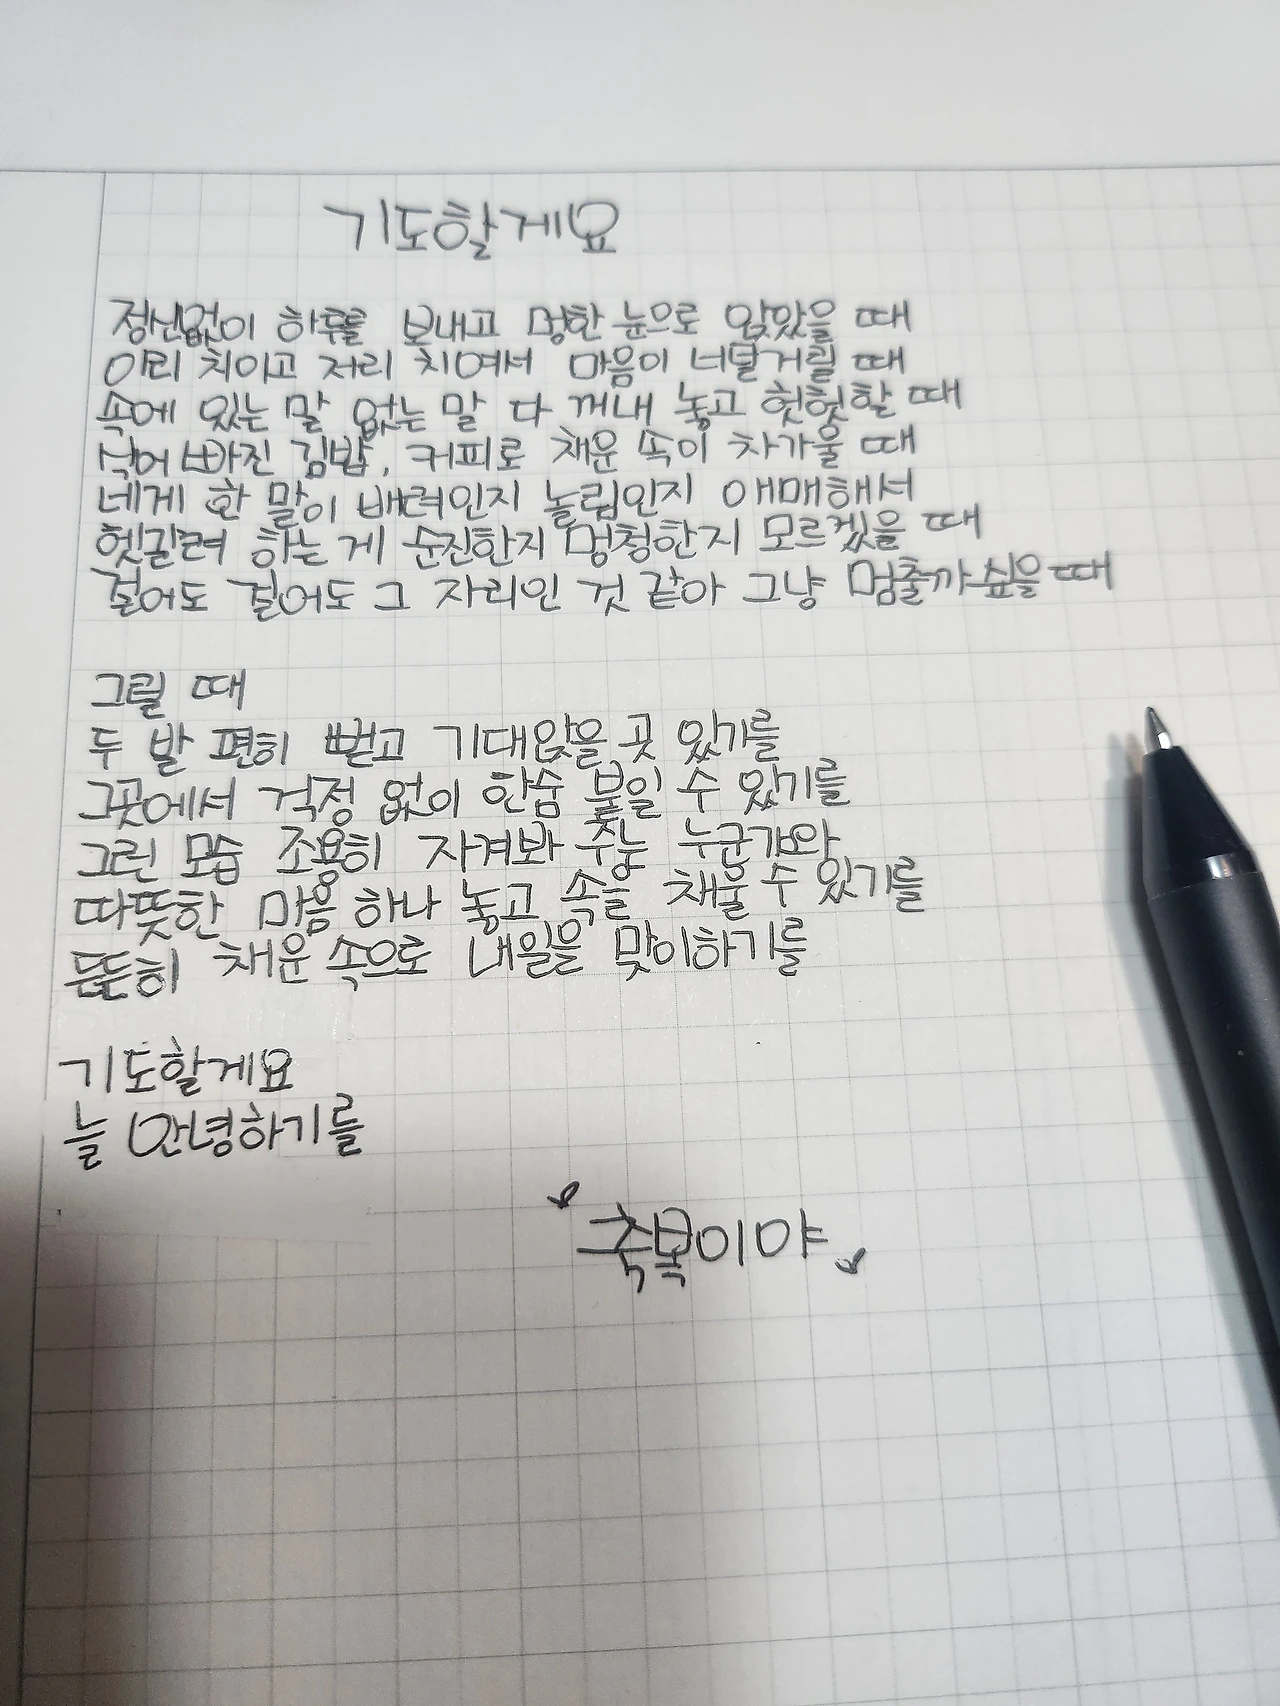 기도할게요
정신없이 하루를 보내고 멍한 눈으로 앉았을 때
이리 치이고 저리 치여서 마음이 너덜거릴 때
속에 있는 말 없는 말 다 꺼내 놓고 헛헛할 때
식어 빠진 김밥, 커피로 채운 속이 차가울 때
네게 한 말이 배려인지 놀림인지 애매해서
헷갈려 하는 게 순진한지 멍청한지 모르겠을 때
걸어도 걸어도 그 자리인 것 같아 그냥 멈출까 싶을 때
그럴 때
두 발 편히 뻗고 기대앉을 곳 있기를
그곳에서 걱정 없이 한숨 붙일 수 있기를
그런 모습 조용히 지켜봐 주는 누군가와
따뜻한 마음 하나 놓고 속을 채울 수 있기를
든든히 채운 속으로 내일을 맞이하기를
기도할게요
늘 안녕하기를
축복이야